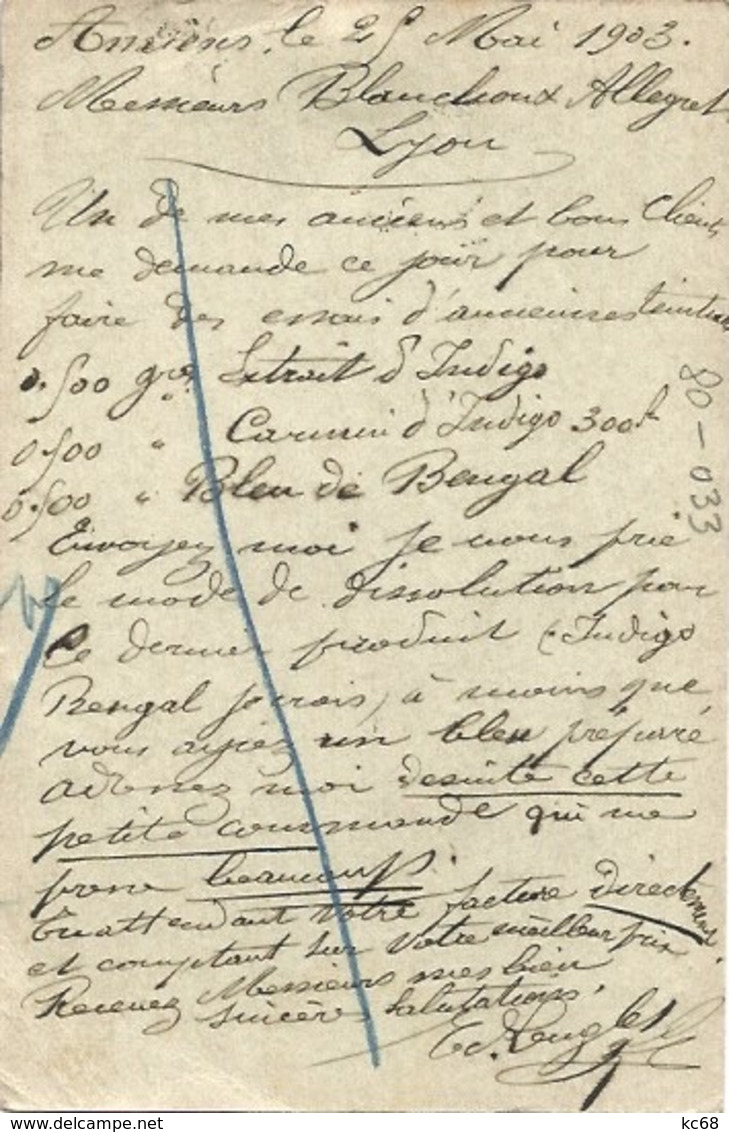 Amiens, le 25 Mai 1903.
Messieurs Blanchoux Allegret
Lyon
Un de mes anciens et bons Clients
me demande ce jour pour
faire des essais d'anciennes teintures
0.500 grs Extrait d'Indigo
0500 " Carmin d'Indigo 300f
0.500 " Bleu de Bengal
Envoyez moi je vous prie
le mode de dissolution pour
ce dernier produit (Indigo
Bengal je crois) à moins que
vous ayiez un bleu préparé
adressez moi desuite cette
petite commande qui me
presse beaucoup.
En attendant votre facture directement
et comptant sur votre meilleur prix.
Recevez Messieurs mes bien
sincères salutations.
Ed. Lenglet
80-033
delcampe.net
kc68